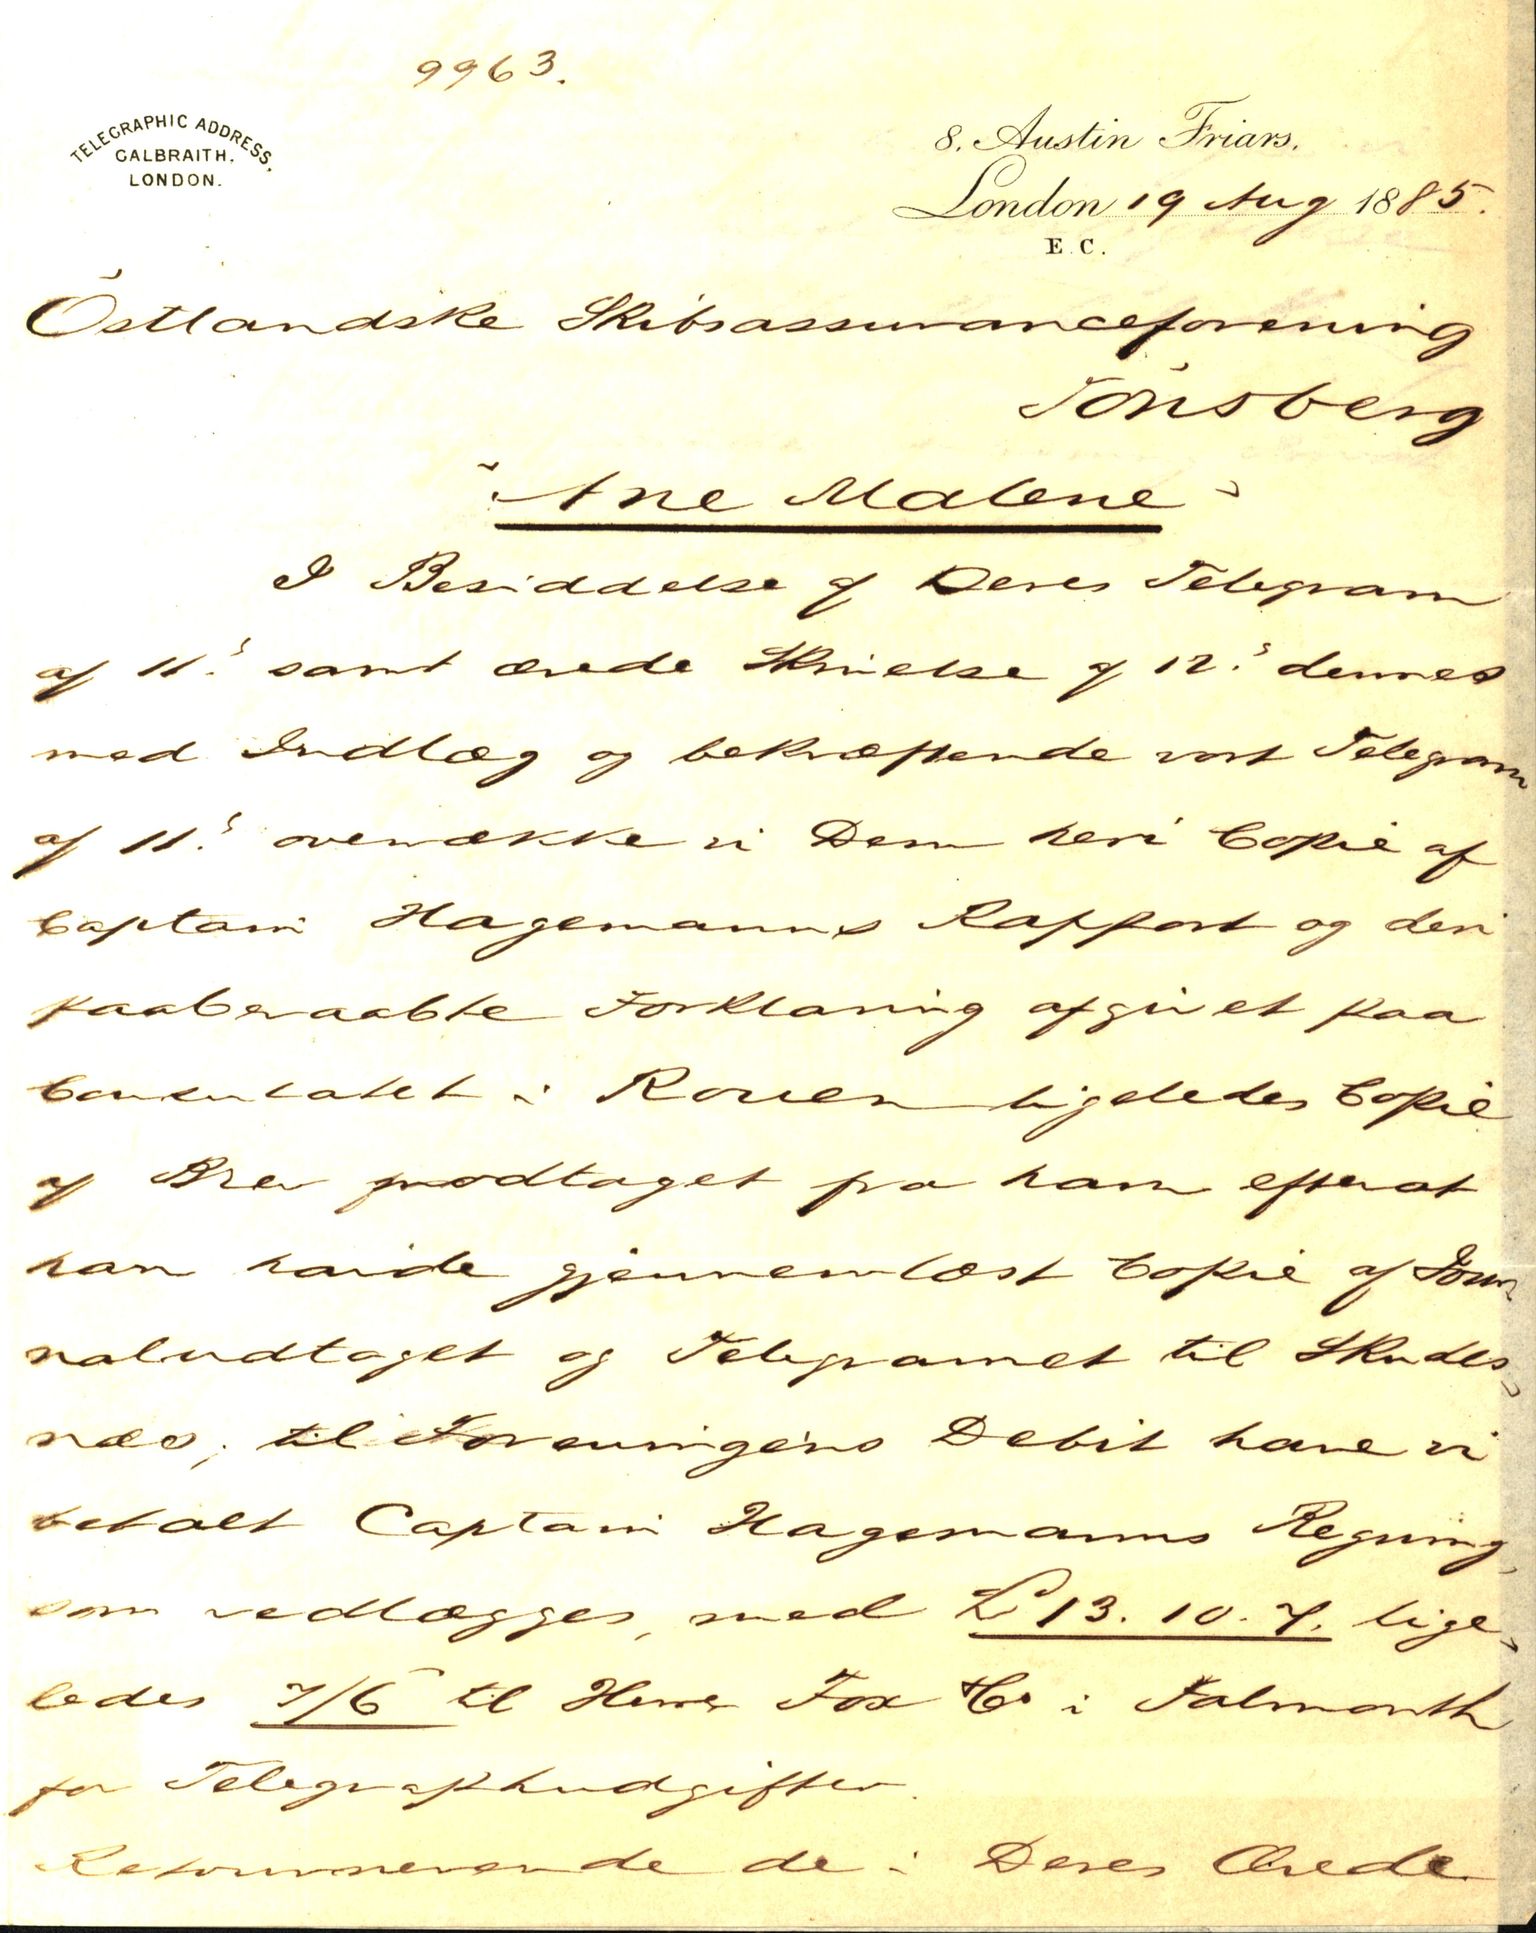 9963.
TELEGRAPHIC ADDRESS,
GALBRAITH.
LONDON.
8. Austin Friars.
London 19 Aug 1885.
E.C.
Östlandske Skibsassuranceforening
Tönsberg
"Ane Malene"
I Besiddelse af Deres Telegram
af 11.' samt ærede Skrivelse af 12.' dennes
med Indlæg og bekræftende vort Telegram
af 11.' overrække vi Dem heri Copie af
Captain Hagemanns Rapport og den
paaberaabte Forklaring afgivet paa
Consulatet i Rouen ligeledes Copie
af Brev modtaget fra ham efterat
han havde gjennemlæst Copie af Jour-
naludtoget og Telegramet til Skudes-
næs; til Foreningens Debit have vi
betalt Captain Hagemanns Regning,
som vedlægges, med £13.10.7. lige-
ledes 7/6 til Herrer Fox & Co i Falmouth
for Telegraphudgifter.
Retournerende de i Deres Ærede